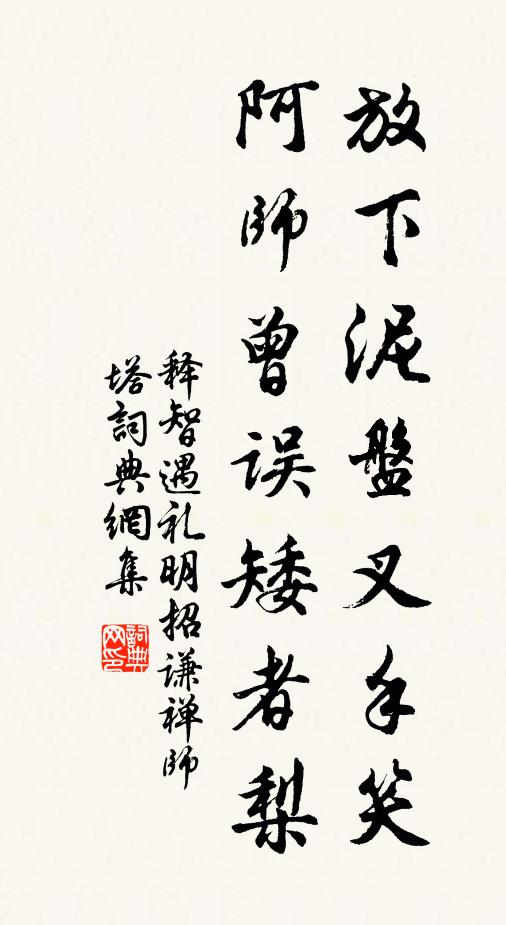 放下泥盤叉手笑
阿師曾误矮者梨
释智遇礼明招谦禅师
塔詞典網集
詞典网印